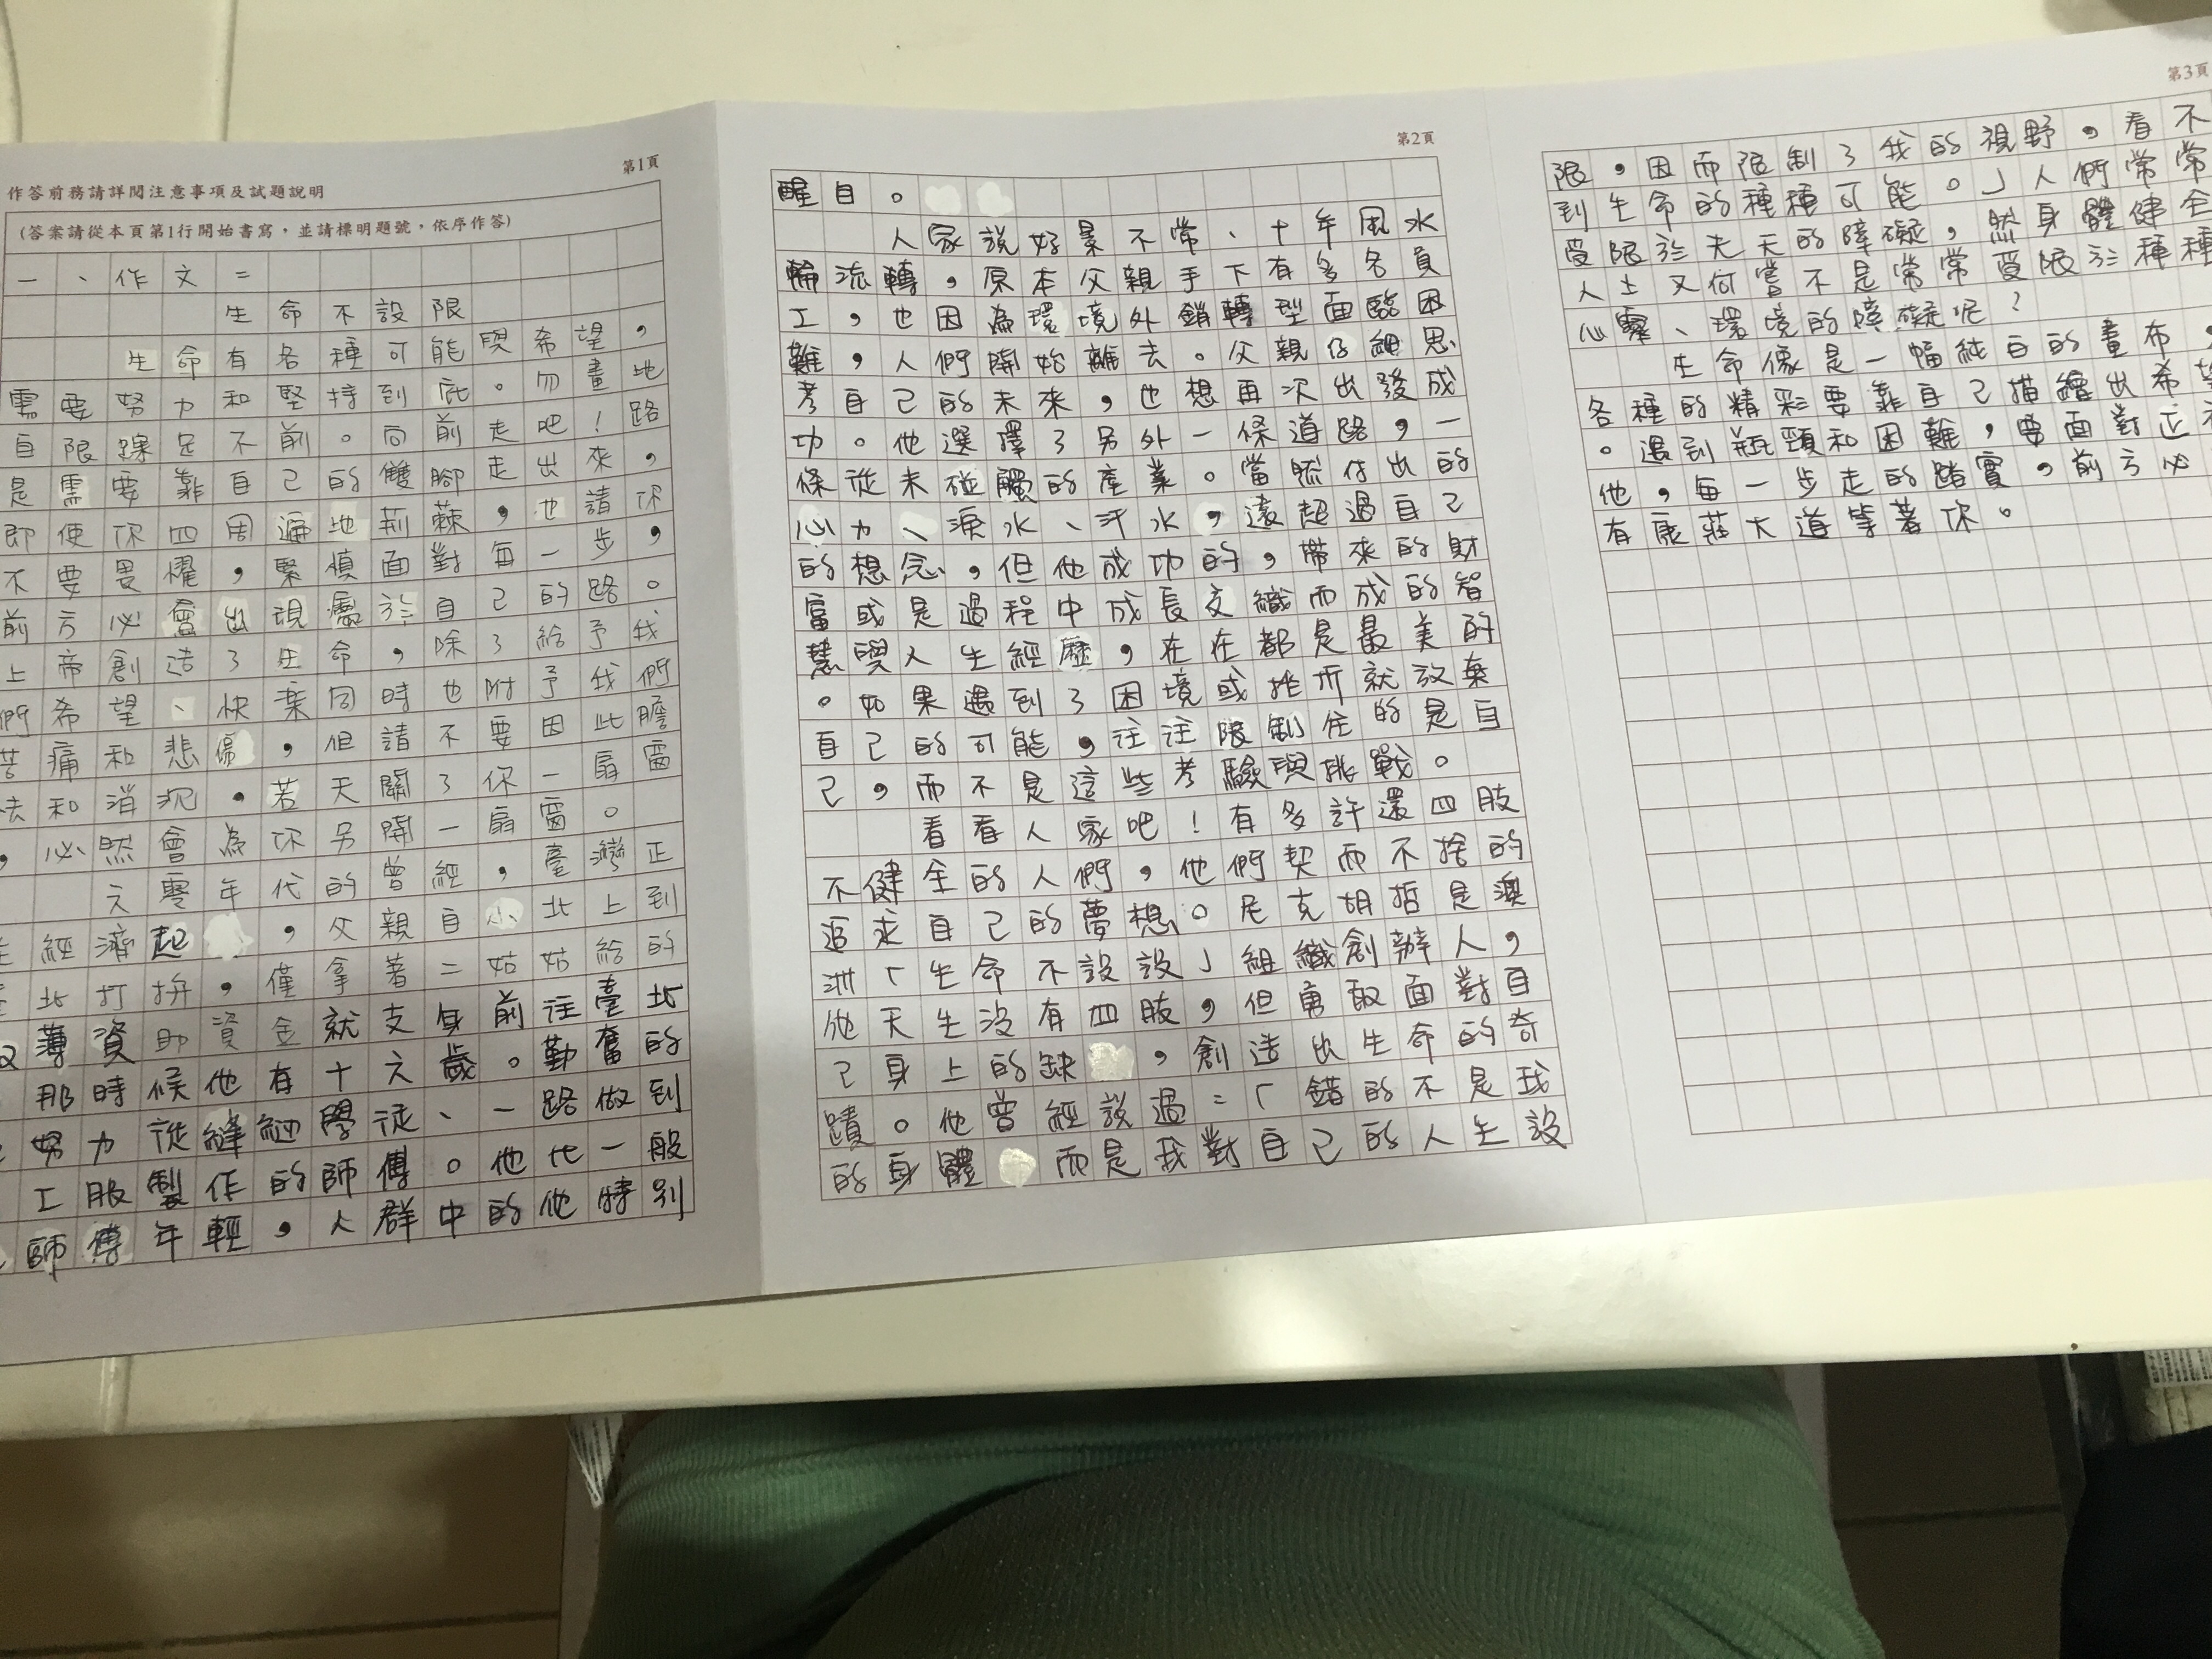 第1頁
作答前務請詳閱注意事項及試題說明
(答案請從本頁第1行開始書寫，並請標明題號，依序作答)
一、作文=
生命不設限
生命有各種可能與希望，
需要努力和堅持到底。勿畫地
自限踝足不前。向前走吧！路
是需要靠自己的雙腳走出來，
即使你四周遍地荊棘，也請你
不要畏懼，緊慎面對每一步，
前方必會出現屬於自己的路。
上帝創造了生命，除了給予我
們希望、快樂同時也附予我們
苦痛和悲傷，但請不要因此膽
去和消沉。若天關了你一扇窗
，必然會為你另開一扇窗。
六零年代的曾經，臺灣正
經濟起，父親自小北上到
北打拚，僅拿著二姑姑給的
薄資助資金就支身前往臺北
那時候他有十六歲。勤奮的
努力從縫紉學徒、一路做到
工服製作的師傅。他比一般
師傅年輕，人群中的他特別
第2頁
醒目。
人家說好景不常、十年風水
輪流轉，原本父親手下有多名員
工，也因為環境外銷轉型面臨困
難，人們開始離去。父親仔細思
考自己的未來，也想再次出發成
功。他選擇了另外一條道路，一
條從未碰觸的產業。當然付出的
心力、淚水、汗水，遠超過自己
的想念，但他成功的，帶來的財
富或是過程中成長交織而成的智
慧與人生經歷，在在都是最美的
。如果遇到了困境或挫折就放棄
自己的可能，往往限制住的是自
己，而不是這些考驗與挑戰。
看看人家吧！有多許還四肢
不健全的人們，他們契而不捨的
追求自己的夢想。尼克胡哲是澳
洲「生命不設設」組織創辦人，
他天生沒有四肢，但勇敢面對自
己身上的缺，創造出生命的奇
蹟。他曾經說過=「錯的不是我
的身體 而是我對自己的人生設
第3頁
限，因而限制了我的視野，看不
到生命的種種可能。」人們常常
受限於先天的障礙，然身體健全
人士又何嘗不是常常受限於種種
心靈、環境的障礙呢？
生命像是一幅純白的畫布，
各種的精彩要靠自己描繪出希望
。遇到瓶頸和困難，要面對正
他，每一步走的踏實，前方必
有康莊大道等著你。